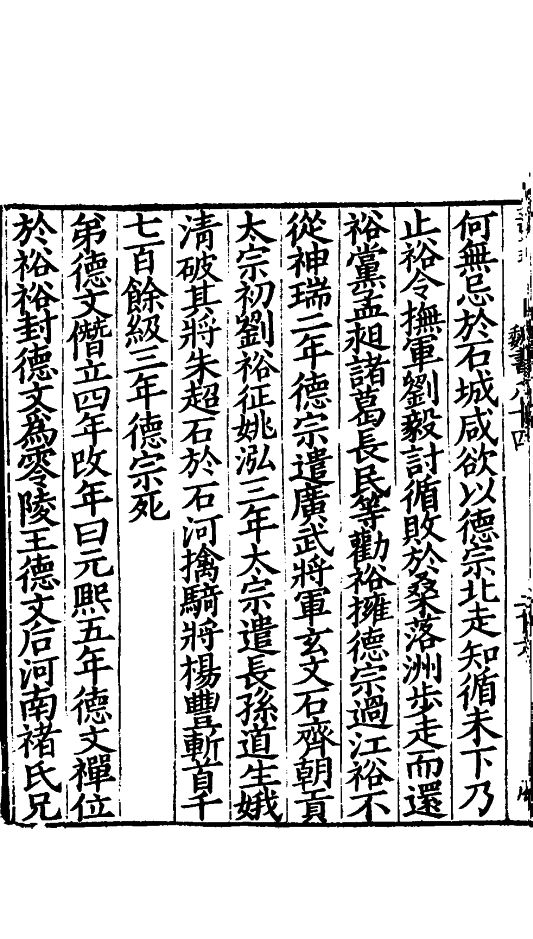 魏書八十四
何無忌於石城咸欲以德宗北走知循未下乃
止裕令撫軍劉毅討循敗於桑落洲步走而還
裕黨孟昶諸葛長民等勸裕擁德宗過江裕不
從神瑞二年德宗遣廣武將軍玄文石齊朝貢
太宗初劉裕征姚泓三年太宗遣長孫道生娥
清破其將朱超石於石河擒騎將楊豐斬首千
七百餘級三年德宗死
弟德文僭立四年改年曰元熙五年德文禪位
於裕裕封德文為零陵王德文后河南褚氏兄